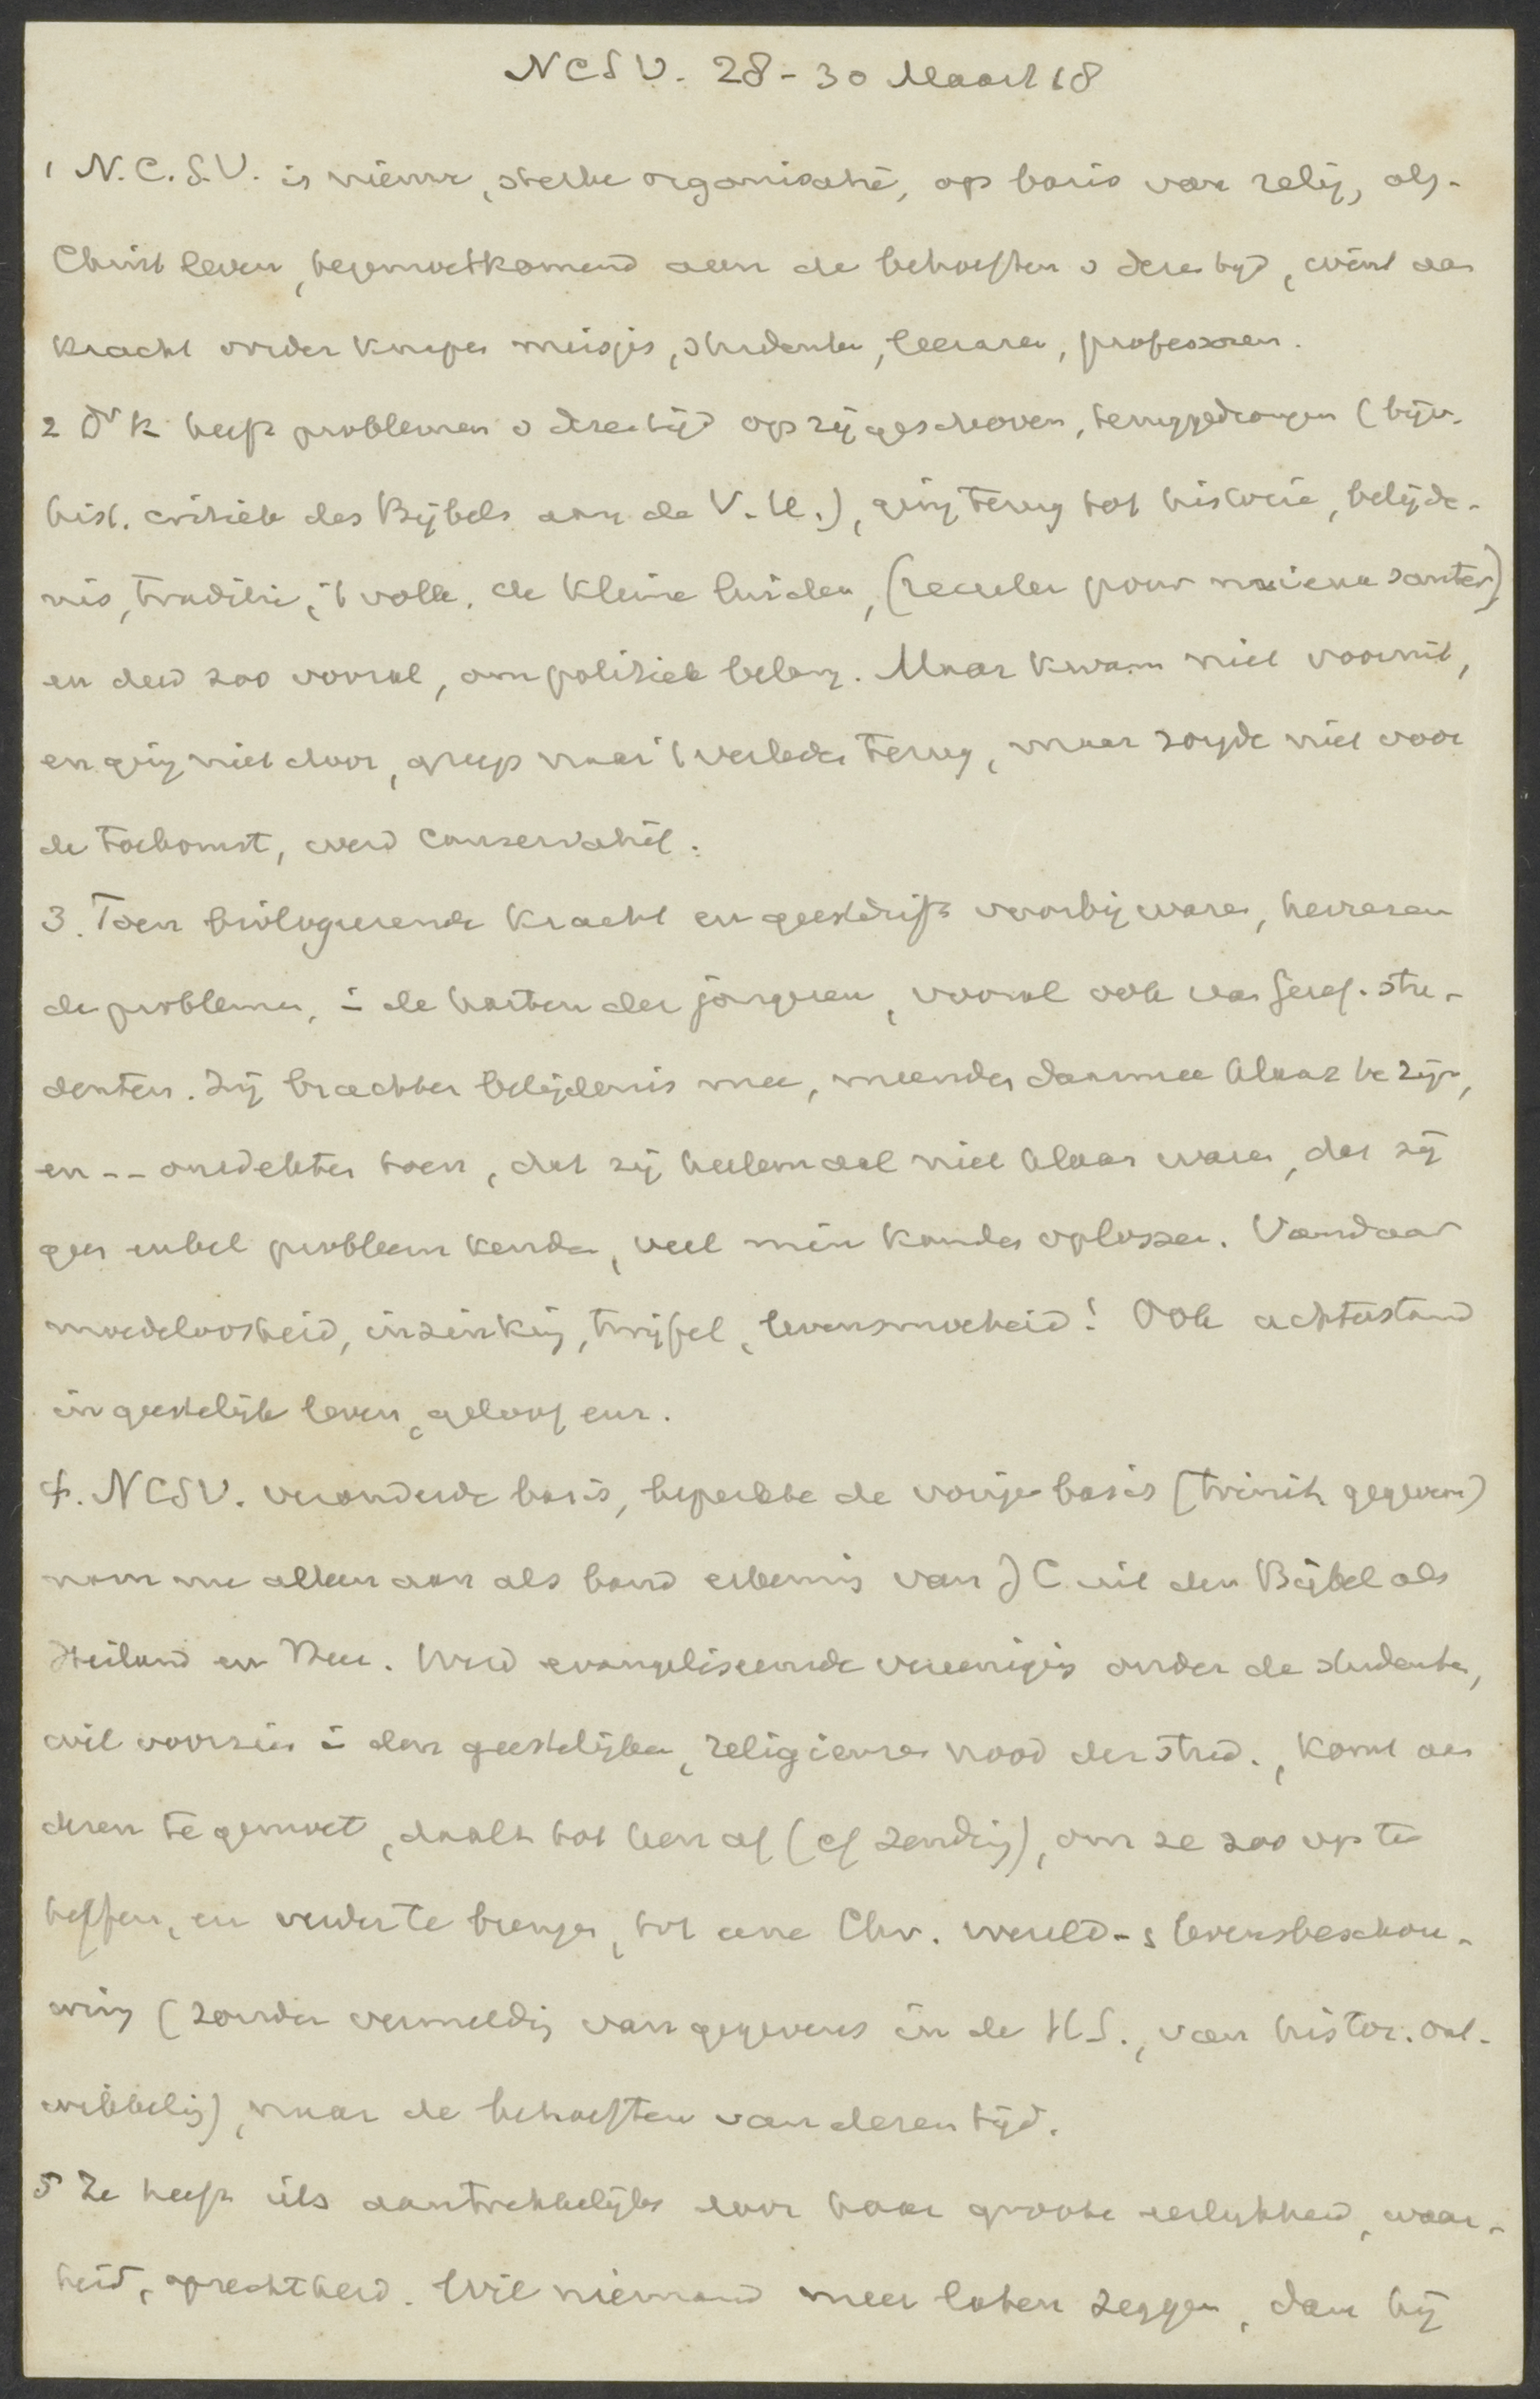 NCSV. 28-30 Maart 18
1 N.C.S.V. is nieuwe, sterke organisatie, op basis van relig, alg.
Christ leven, tegemoetkomend aan de behoeften v dezen tijd, wint aan
kracht onder knapen meisjes, studenten, leeraren, professoren.
2 Dr K heeft problemen v dezen tijd op zij geschoven, teruggedrongen (bijv.
hist. critiek des Bijbels aan de V.U.), ging terug tot historie, belijde-
nis, traditie, 't volk, de kleine luiden, (reculer pour mieux sauter)
en deed zoo vooral, om politiek belang. Maar kwam niet vooruit,
en ging niet door, greep naar 't verleden terug, maar zorgde niet voor
de toekomst, werd conservatief.
3. Toen biologeerende kracht en geestdrift voorbij waren, herrezen
de problemen, in de harten der jongeren, vooral ook van Geref. stu-
denten. Zij brachten belijdenis mee, meenden daarmee klaar te zijn,
en -- ontdekten toen, dat zij heelemaal niet klaar waren, dat zij
geen enkel probleem kenden, veel min konden oplossen. Vandaar
moedeloosheid, inzinking, twijfel, levensmoeheid! Ook achterstand
in geestelijk leven, geloof enz.
4. NCSV. veranderde basis, beperkte de vorige basis (trinit. gegeven)
nam nu alleen aan als band erkennis van JC uit den Bijbel als
Heiland en Heer. Werd evangeliseerende vereeniging onder de studenten,
wil voorzien in den geestelijken, religieuzen nood der stud., komt aan
dezen te gemoet, daalt tot hen af (cf zending), om ze zoo op te
heffen, en verder te brengen, tot eene Chr. wereld- & levensbeschou-
wing (zonder vermelding van gegevens in de H.S., van histor. ont-
wikkeling), naar de behoeften van dezen tijd.
5 Ze heeft iets aantrekkelijks door haar groote eerlijkheid, waar-
heid, oprechtheid. Wil niemand meer laten zeggen, dan hij